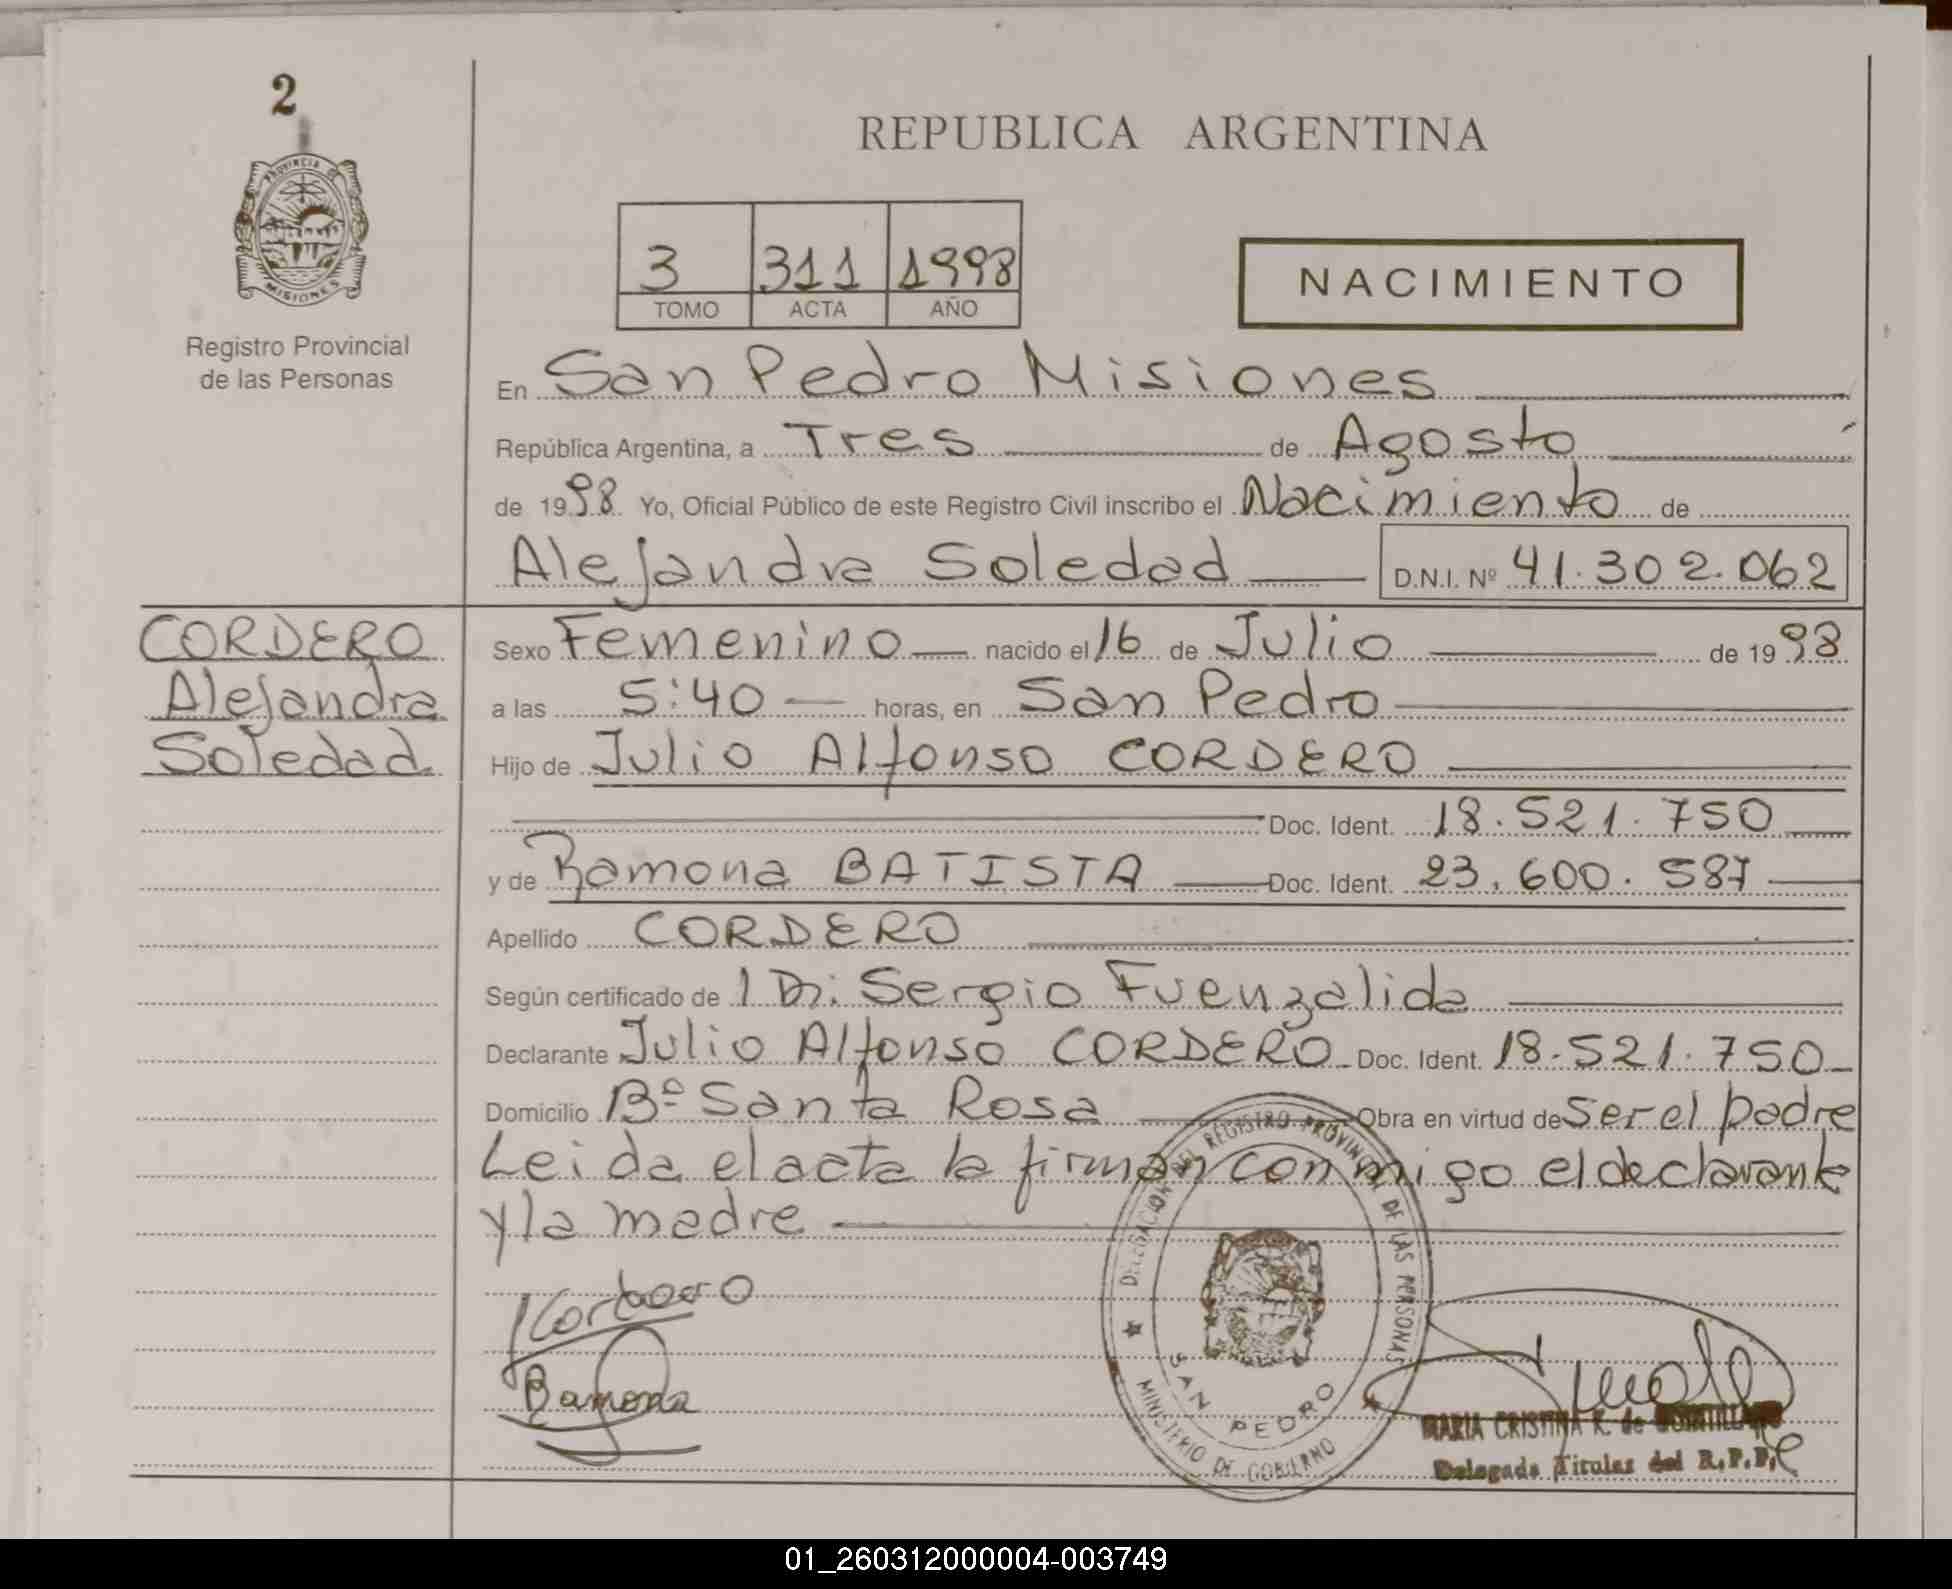 2
REPUBLICA ARGENTINA
PROVINCIA DE
MISIONES
Registro Provincial
de las Personas
3 311 1998
TOMO ACTA AÑO
NACIMIENTO
En San Pedro Misiones
República Argentina, a Tres de Agosto
de 1998 Yo, Oficial Público de este Registro Civil inscribo el Nacimiento de
Alejandra Soledad D.N.I. Nº 41.302.062
CORDERO
Alejandra
Soledad
Sexo Femenino nacido el 16 de Julio de 1998
a las 5:40 horas, en San Pedro
Hijo de Julio Alfonso CORDERO
Doc. Ident. 18.521.750
y de Ramona BATISTA Doc. Ident. 23.600.587
Apellido CORDERO
Según certificado de 1 Dr. Sergio Fuenzalida
Declarante Julio Alfonso CORDERO Doc. Ident. 18.521.750
Domicilio Bº Santa Rosa Obra en virtud de Ser el padre
Leida el acta la firman conmigo el declarante
y la madre
DELEGACION DEL REGISTRO PROVINCIAL DE LAS PERSONAS
SAN PEDRO
MINISTERIO DE GOBIERNO
Ramona
MARIA CRISTINA R. de
Delegada Titular del R.P.P.
01_260312000004-003749